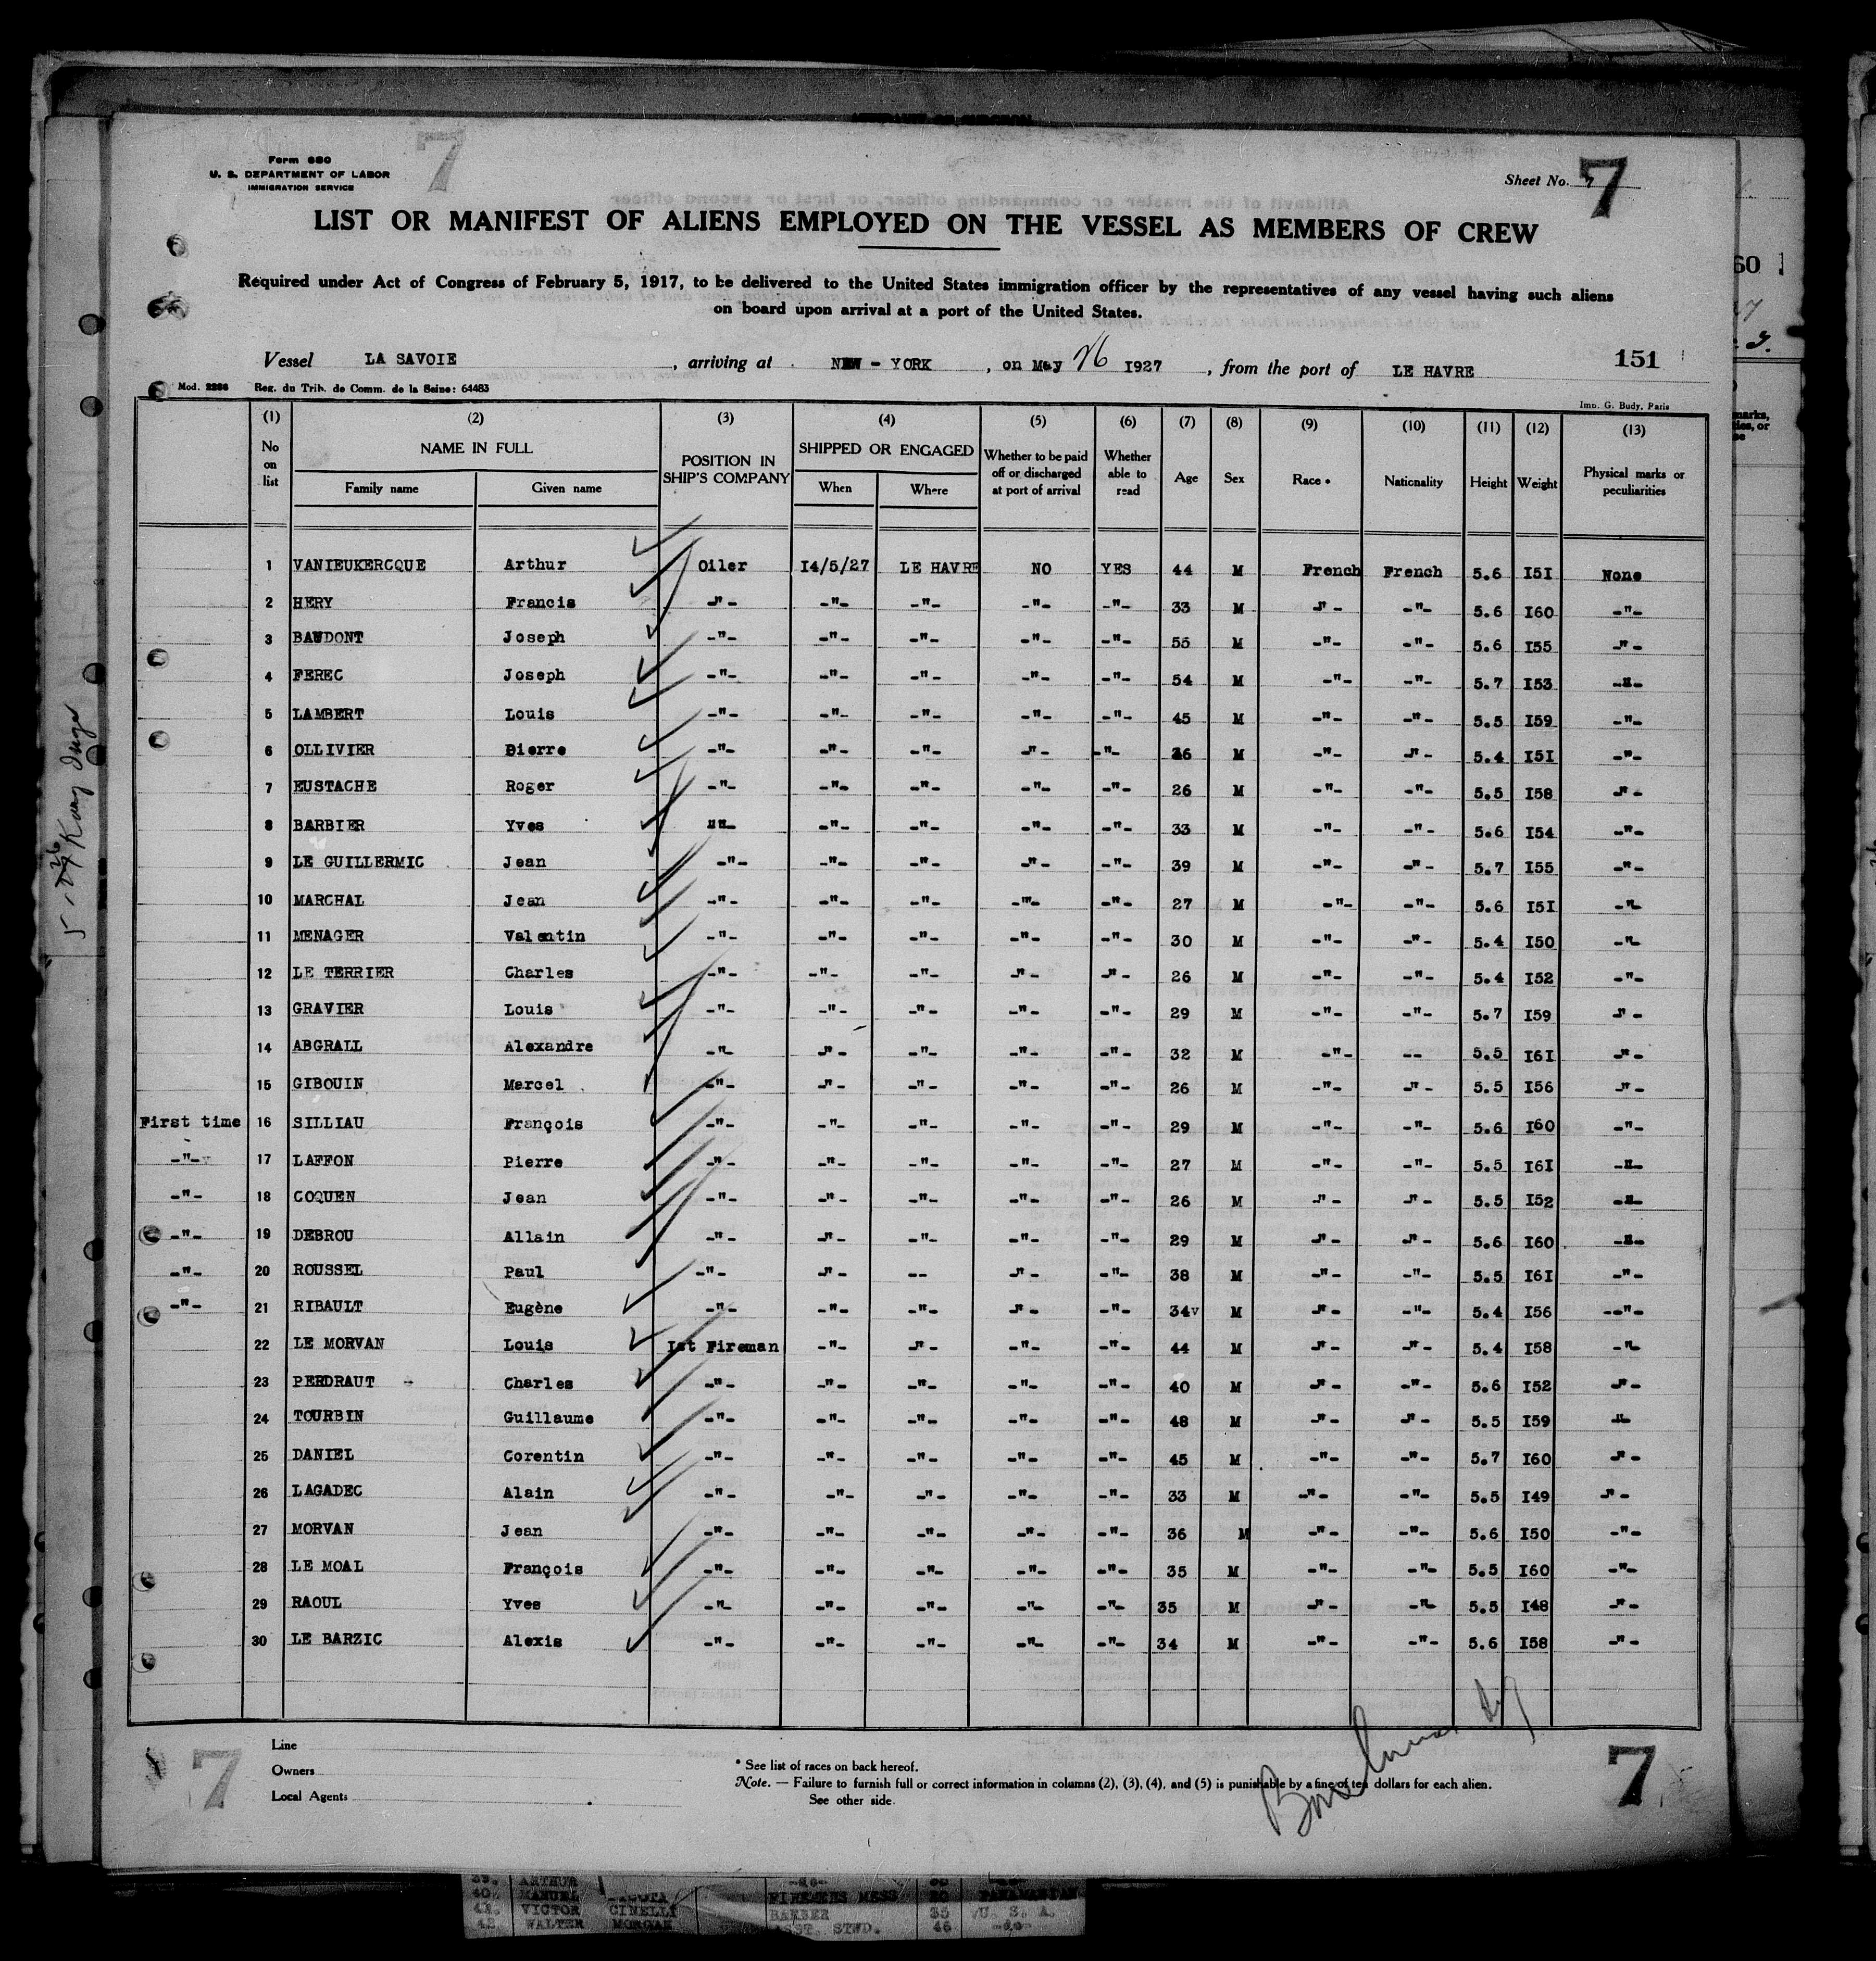 7
Form 680
U. S. DEPARTMENT OF LABOR
IMMIGRATION SERVICE
Sheet No. 7
7
LIST OR MANIFEST OF ALIENS EMPLOYED ON THE VESSEL AS MEMBERS OF CREW
Required under Act of Congress of February 5, 1917, to be delivered to the United States immigration officer by the representatives of any vessel having such aliens
on board upon arrival at a port of the United States.
Vessel LA SAVOIE , arriving at NEW - YORK , on May 26 I927 , from the port of LE HAVRE 151
Mod. 2226 Reg. du Trib. de Comm. de la Seine: 64483
Imp. G. Budy, Paris
(1) (2) (3) (4) (5) (6) (7) (8) (9) (10) (11) (12) (13)
No on list NAME IN FULL Family name Given name POSITION IN SHIP'S COMPANY SHIPPED OR ENGAGED When Where Whether to be paid off or discharged at port of arrival Whether able to read Age Sex Race * Nationality Height Weight Physical marks or peculiarities
1 VANIEUKERCQUE Arthur Oiler I4/5/27 LE HAVRE NO YES 44 M French French 5.6 I5I None
2 HERY Francis -"- -"- -"- -"- -"- 33 M -"- -"- 5.6 I60 -"-
3 BAUDONT Joseph -"- -"- -"- -"- -"- 55 M -"- -"- 5.6 I55 -"-
4 FEREC Joseph -"- -"- -"- -"- -"- 54 M -"- -"- 5.7 I53 -"-
5 LAMBERT Louis -"- -"- -"- -"- -"- 45 M -"- -"- 5.5 I59 -"-
6 OLLIVIER Pierre -"- -"- -"- -"- -"- 26 M -"- -"- 5.4 I5I -"-
7 EUSTACHE Roger -"- -"- -"- -"- -"- 26 M -"- -"- 5.5 I58 -"-
8 BARBIER Yves ""- -"- -"- -"- -"- 33 M -"- -"- 5.6 I54 -"-
9 LE GUILLERMIC Jean -"- -"- -"- -"- -"- 39 M -"- -"- 5.7 I55 -"-
10 MARCHAL Jean -"- -"- -"- -"- -"- 27 M -"- -"- 5.6 I5I -"-
11 MENAGER Valentin -"- -"- -"- -"- -"- 30 M -"- -"- 5.4 I50 -"-
12 LE TERRIER Charles -"- -"- -"- -"- -"- 26 M -"- -"- 5.4 I52 -"-
13 GRAVIER Louis -"- -"- -"- -"- -"- 29 M -"- -"- 5.7 I59 -"-
14 ABGRALL Alexandre -"- -"- -"- -"- -"- 32 M -"- -- 5.5 I6I -"-
15 GIBOUIN Marcel -"- -"- -"- -"- -"- 26 M -"- -"- 5.5 I56 -"-
First time 16 SILLIAU François -"- -"- -"- -"- -"- 29 M -"- -"- 5.6 I60 -"-
-"- 17 LAFFON Pierre -"- -"- -"- -"- -"- 27 M -"- -"- 5.5 I6I -"-
-"- 18 COQUEN Jean -"- -"- -"- -"- -"- 26 M -"- -"- 5.5 I52 -"-
-"- 19 DEBROU Allain -"- -"- -"- -"- -"- 29 M -"- -"- 5.6 I60 -"-
-"- 20 ROUSSEL Paul -"- -"- -- -"- -"- 38 M -"- -"- 5.5 I6I -"-
-"- 21 RIBAULT Eugène -"- -"- -"- -"- -"- 34v M -"- -"- 5.4 I56 --"-
22 LE MORVAN Louis Ist Fireman -"- -"- -"- -"- 44 M -"- -"- 5.4 I58 -"-
23 PERDRAUT - Charles -"- -"- -"- -"- -"- 40 M -"- -"- 5.6 I52 -"-
24 TOURBIN Guillaume -"- -"- -"- -"- -"- 48 M -"- -"- 5.5 I59 -"-
25 DANIEL Corentin -"- -"- -"- -"- -"- 45 M -"- -"- 5.7 I60 -"-
26 LAGADEC Alain -"- -"- -"- -"- -"- 33 M -"- -"- 5.5 I49 -"-
27 MORVAN Jean -"- -"- -"- -"- -"- 36 M -"- -"- 5.6 I50 -"-
28 LE MOAL François -"- -"- -"- -"- -"- 35 M -"- -"- 5.5 I60 -"-
29 RAOUL Yves -"- -"- -"- -"- -"- 35 M -"- -"- 5.5 I48 -"-
30 LE BARZIC Alexis -"- -"- -"- -"- -"- 34 M -"- -"- 5.6 I58 -"-
Line
Owners
Local Agents
* See list of races on back hereof.
Note. — Failure to furnish full or correct information in columns (2), (3), (4), and (5) is punishable by a fine of ten dollars for each alien.
See other side.
7
7
39. ARTHUR
40. MANUEL FIREMENS MESS PANAMANIAN
41. VICTOR CINELLI BARBER 35 U. S. A.
42. WALTER MORGAN ASST. STWD. 46